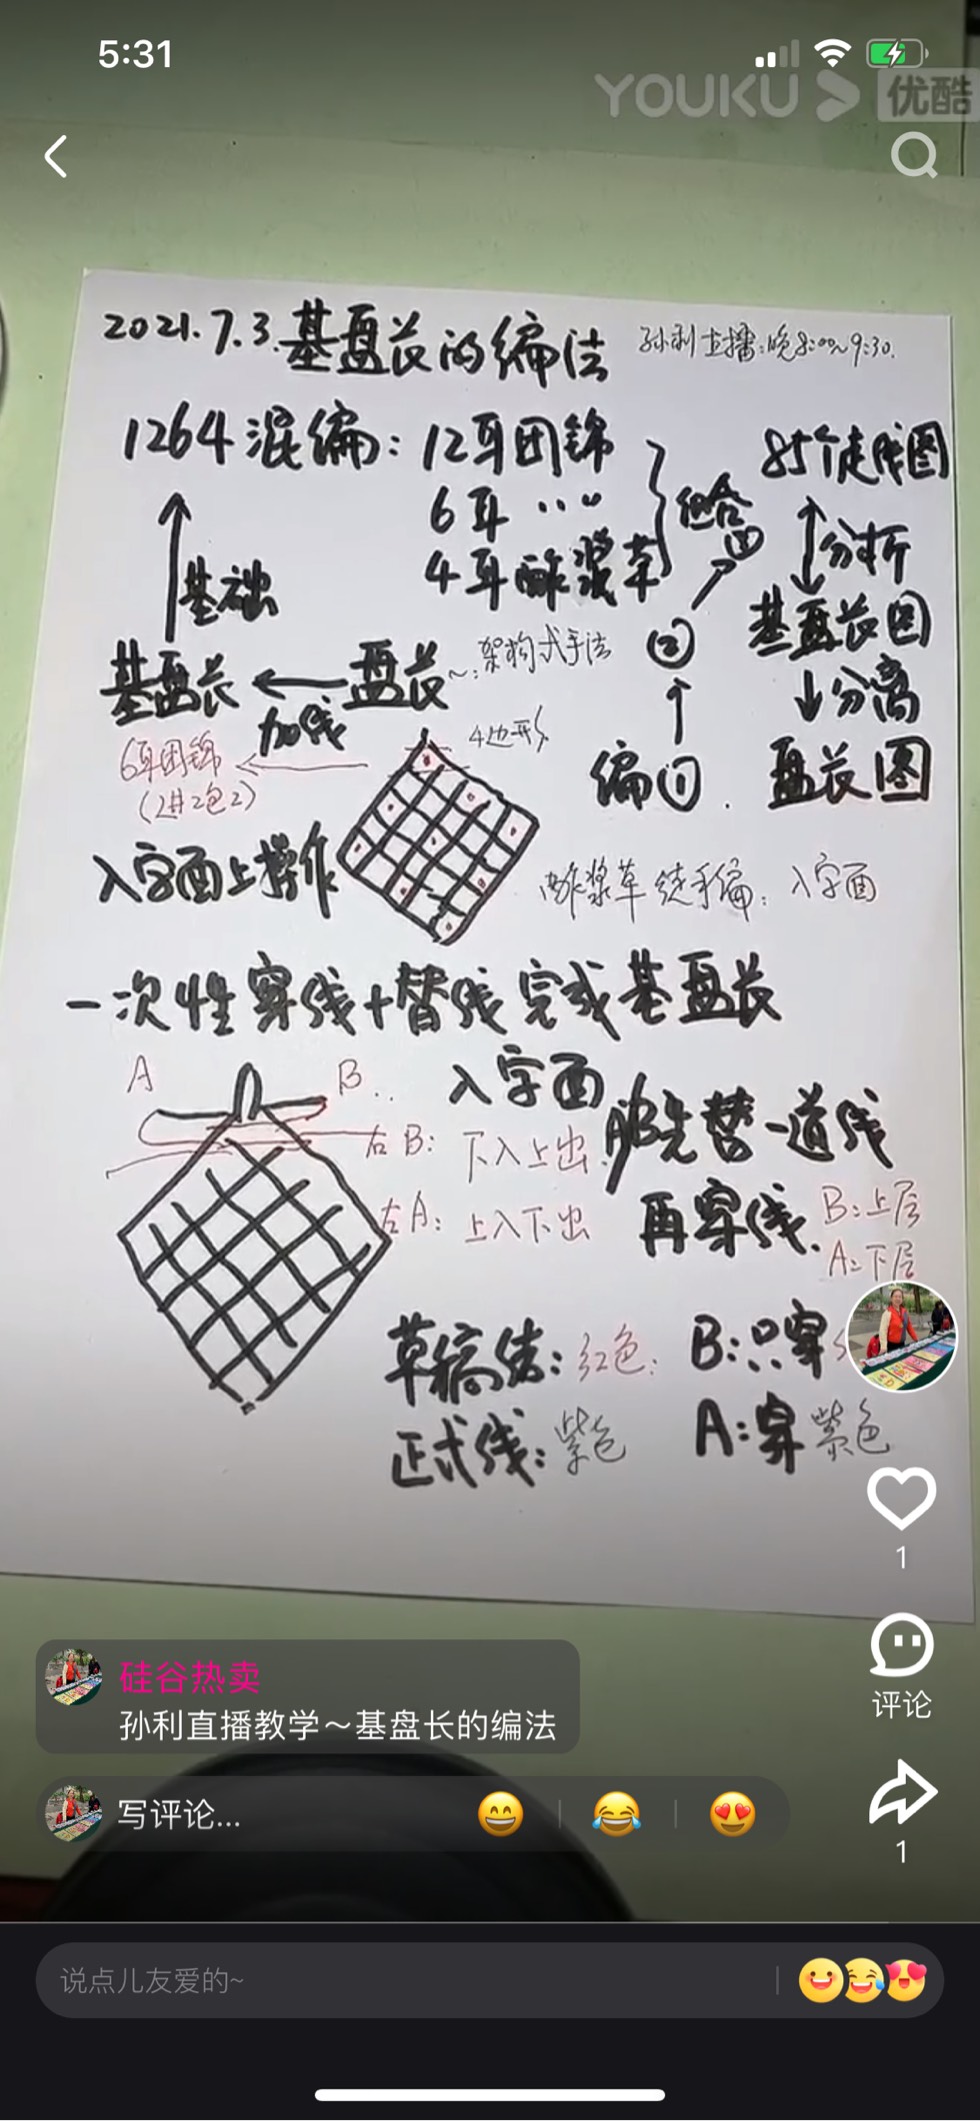 5:31
YOUKU 优酷
2021.7.3.基盘长的编法
孙利直播:晚8:00~9:30.
1264混编:12耳团锦
6耳 〃〃
4耳酢浆草
组合
图
基础
85个走线图
分析
基盘长图
分离
盘长图
基盘长
盘长~:架构式手法
加线
②
编①.
4边形
6耳团锦
(2进2包2)
入字面上操作
酢浆草 徒手编:入字面
一次性穿线+替线完成基盘长
A
B..
入字面
右B:下入上出.
先替一道线
右A:上入下出
再穿线.
B:上层
A:下层
草稿线:红色:
B:只穿
正式线:紫色
A:穿紫色
1
硅谷热卖
孙利直播教学~基盘长的编法
评论
写评论...
1
说点儿友爱的~